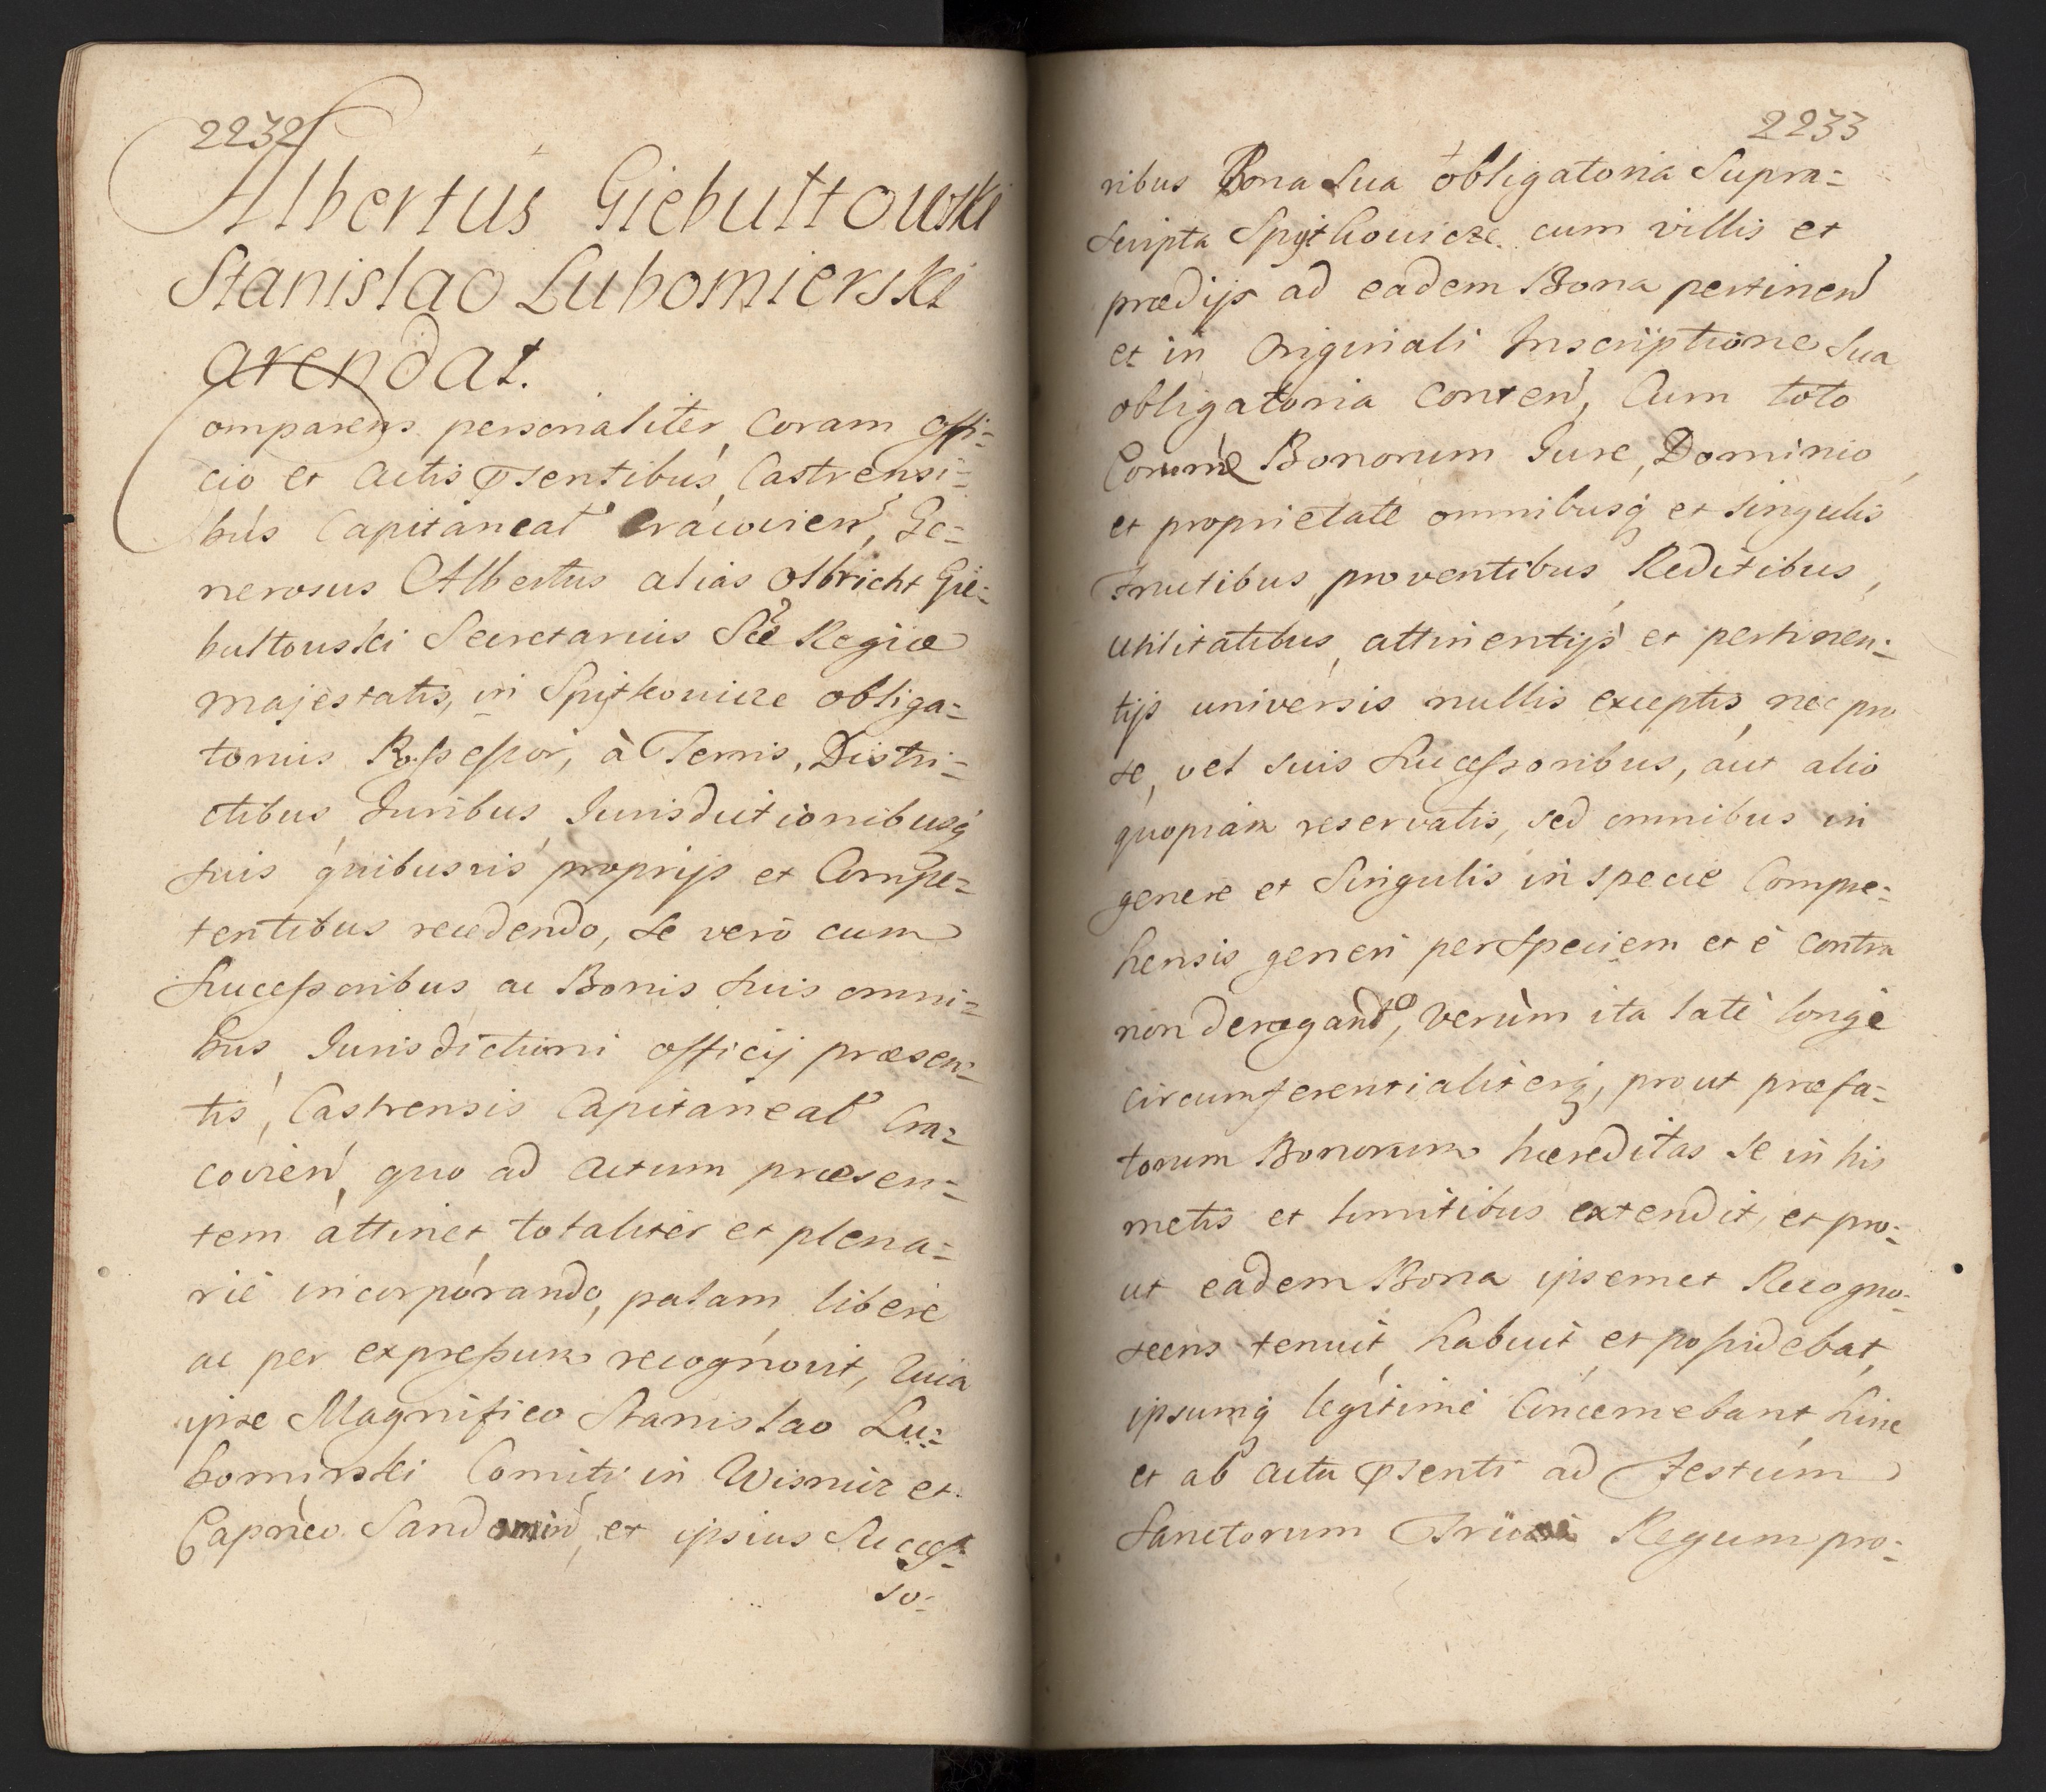 2232
Albertus Giebułtowski
Stanislao Lubomierski
arendat.
Comparens personaliter, Coram Offi=
cio et Actis pñsentibus, Castrensi=
bus Capitaneal Cracovien, Ge=
nerosus Albertus alias Olbricht Gie=
bultouski Secretarius Sæ Regiæ
majestatis, in Spÿtkouicze obliga=
torius Possessor, à Terris, Distri=
ctibus Iuribus Iurisdictionibusq
suis quibusvis proprijs et Compe=
tentibus recedendo, se verò cum
Successoribus ac Bonis suis omni=
bus Iurisdictioni officij præsen=
tis, Castrensis Capitaneal Cra=
covien, quo ad actum præsen=
tem attinet, totaliter et plena=
riè incorporando, palam, liberè
ac per expressum recognovit, Quia
ipse Magnifico Stanislao Lu=
bomirski Comiti in Wisnicz et
Capneo Sandomir, et ipsius Success=
so=
2233
ribus Bona Sua obligatoria Supra=
scripta Spytkouicze cum villis et
prædijs ad eadem Bona pertinen
et in Originali Inscriptione sua
obligatoria conten, Cum toto
Eorume Bonorum Iure, Dominio,
et proprietate omnibusq et singulis
Fructibus, proventibus Reditibus,
utilitatibus, attinentijs et pertinen=
tijs universis nullis exceptis, nec pro
se, vel suis successoribus, aut alio
quopiam reservatis, sed omnibus in
genere et Singulis in specie Compre=
hensis generi per Speciem et è contra
non derogando, verùm ita latè longè
circumferentialiterq, prout præfa=
torum Bonorum hæreditas se in his
metis et limitibus extendit, et pro=
ut eadem Bona ipsemet Recogno=
scens tenuit, habuit, et possidebat,
ipsumq legitimè Concernebant, hinc
et ab actu pñsenti ad Festum
Sanctorum Trium Regum pro=